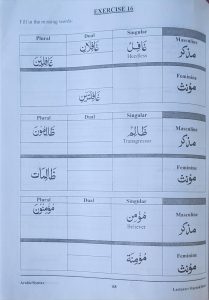 EXERCISE 16
Fill in the missing words:
Plural Dual Singular
غَافِلَانِ غَافِلٌ Masculine
Heedless مذكر
غَافِلِيْنَ
Feminine
غَافِلَتَيْنِ مؤنث
Plural Dual Singular
ظَالِمُوْنَ ظَالِمٌ Masculine
Transgressor مذكر
Feminine
ظَالِمَاتٌ مؤنث
Plural Dual Singular
مُؤْمِنُوْنَ مُؤْمِنٌ Masculine
Believer مذكر
Feminine
مُؤْمِنَةٌ مؤنث